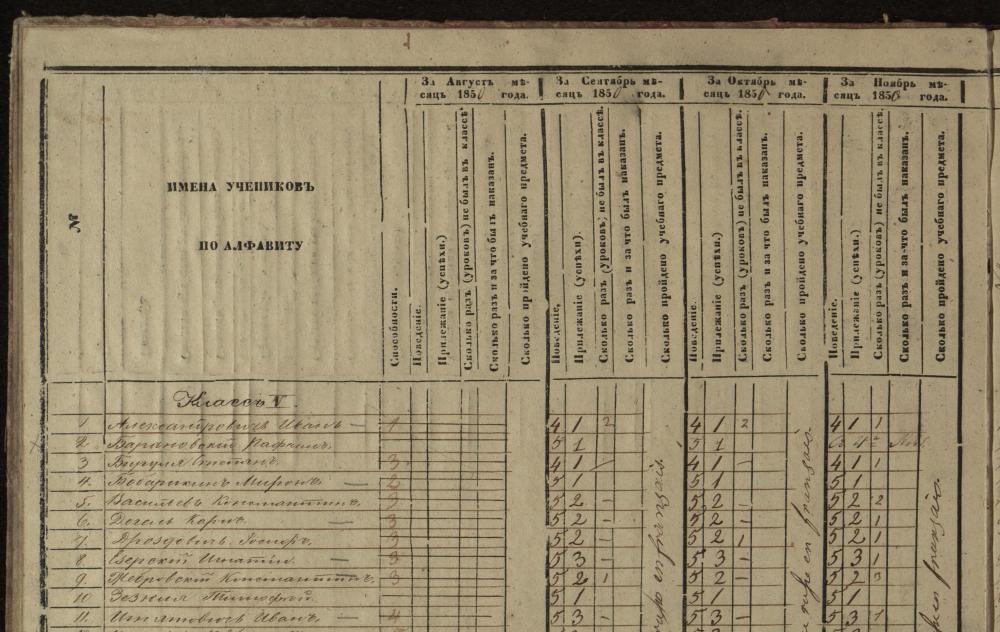 За Августъ мѣ-
сяцъ 1850 года.
За Сентябрь мѣ-
сяцъ 1850 года.
За Октябрь мѣ-
сяцъ 1850 года.
За Ноябрь мѣ-
сяцъ 1850 года.
№
ИМЕНА УЧЕНИКОВЪ
ПО АЛФАВИТУ
Способности.
Поведеніе.
Прилежаніе (успѣхи.)
Сколько разъ (уроковъ) не былъ въ классѣ.
Сколько разъ и за что былъ наказанъ.
Сколько пройдено учебнаго предмета.
Поведеніе.
Прилежаніе (успѣхи).
Сколько разъ (уроковъ) не былъ въ классѣ.
Сколько разъ и за что былъ наказанъ.
Сколько пройдено учебнаго предмета.
Поведеніе.
Прилежаніе (успѣхи.)
Сколько разъ (уроковъ) не былъ въ классѣ.
Сколько разъ и за что былъ наказанъ.
Сколько пройдено учебнаго предмета.
Поведеніе.
Прилежаніе (успѣхи.)
Сколько разъ (уроковъ) не былъ въ классѣ.
Сколько разъ и за что былъ наказанъ.
Сколько пройдено учебнаго предмета.
Классъ V
1 Александровичъ Иванъ — 4 4 1 2 4 1 2 4 1 1
2. Барановскій 5 1 5 1
3 Степанъ. 3 4 1 4 1 – 4 1 1
4. Миронъ. — 2 5 1 5 1 5 1
5. Васильевъ Константинъ. 3 5 2 – 5 2 – 5 2 2
6. — 3 5 2 – 5 2 – 5 2 1
7. Дроздовичъ 3 5 2 – 5 2 1 5 2 1
8 Езерскій Игнатій — 3 5 3 – 5 3 – 5 3 1
9. Жебровскій Константинъ. 3 5 2 1 5 2 – 5 2 3
10 Тимофей. 5 1 5 1 5 1
11. Игнатовичъ Иванъ. — 4 5 3 – 5 3 – 5 3 1
en français.
en français.
français.